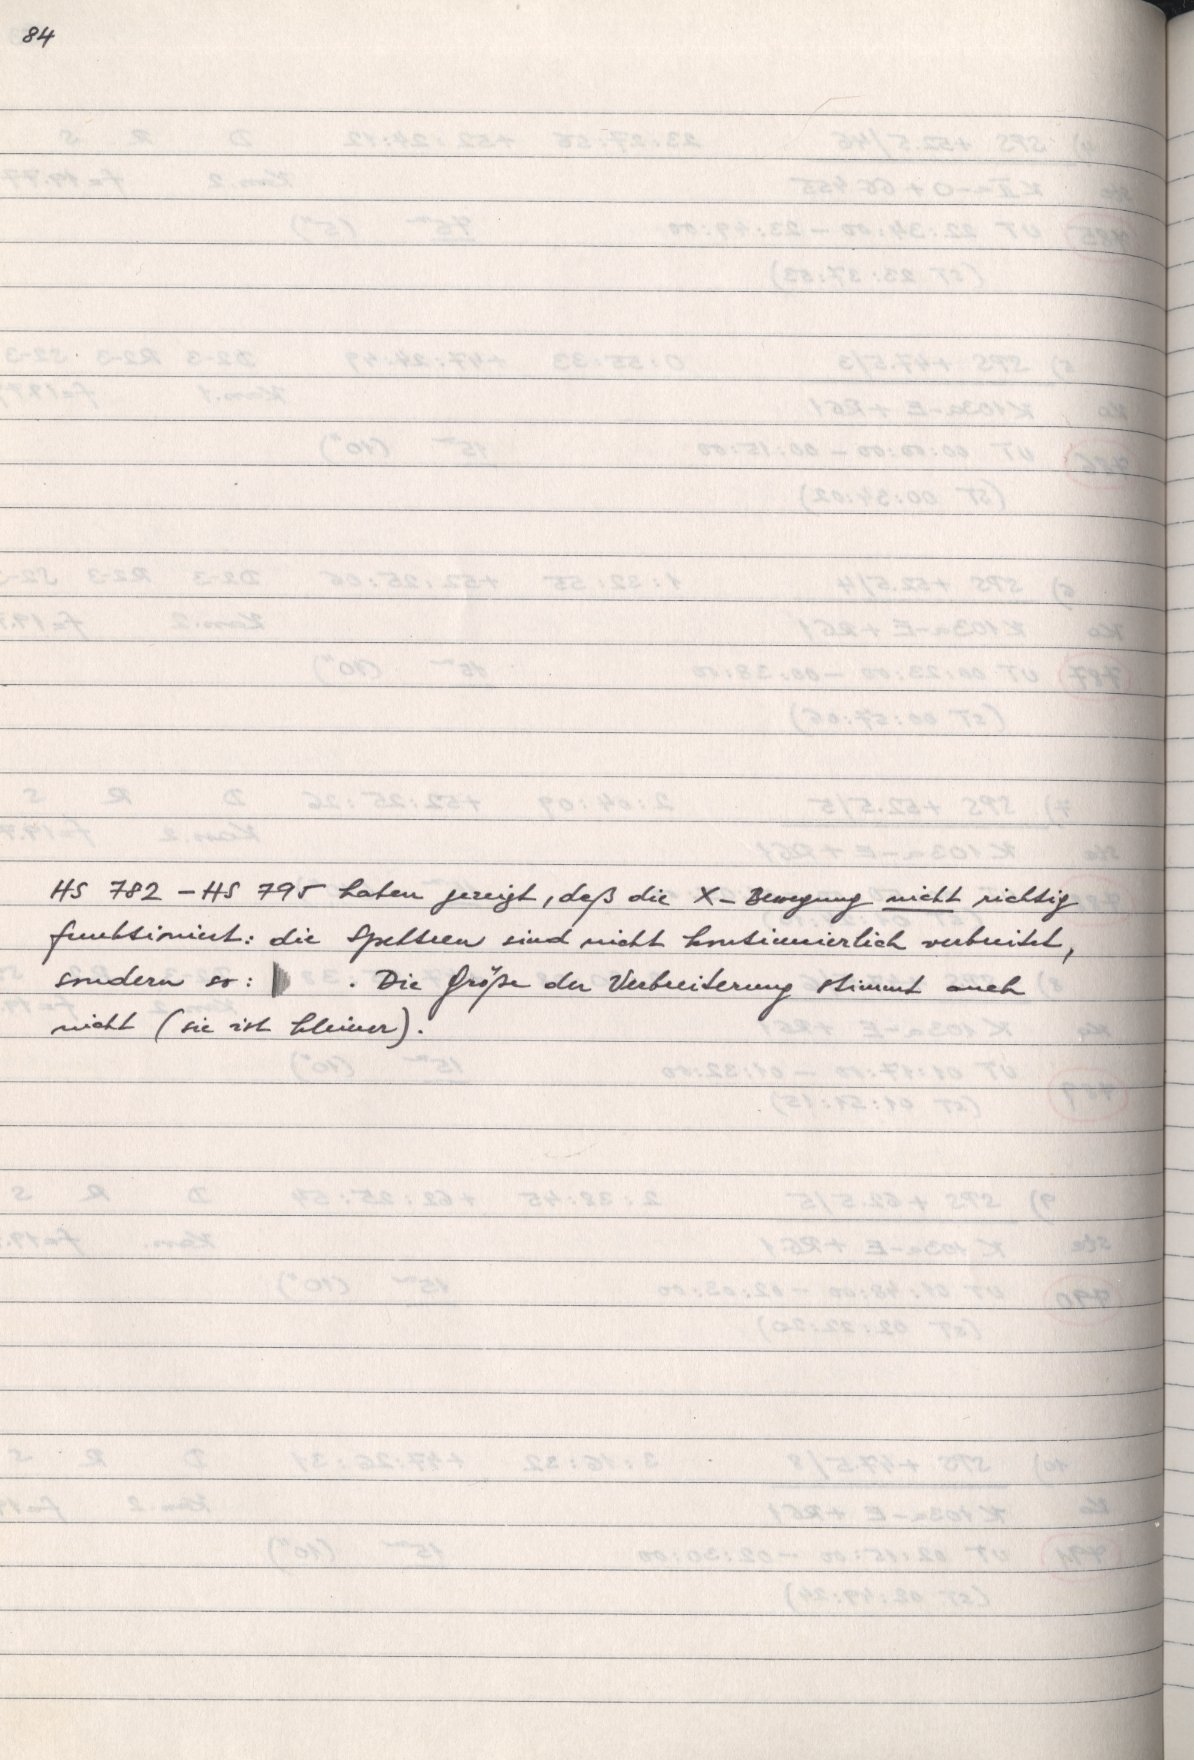 84
HS 782 – HS 795 haben gezeigt, daß die X-Bewegung nicht richtig
funktioniert: die Spektren sind nicht kontinuierlich verbreitet,
sondern so: . Die Größe der Verbreiterung stimmt auch
nicht (sie ist kleiner).